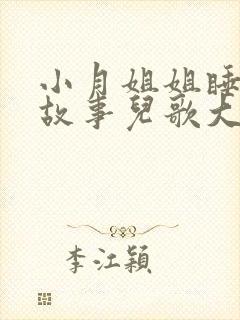 小月姐姐睡
故事兒歌大
李江穎